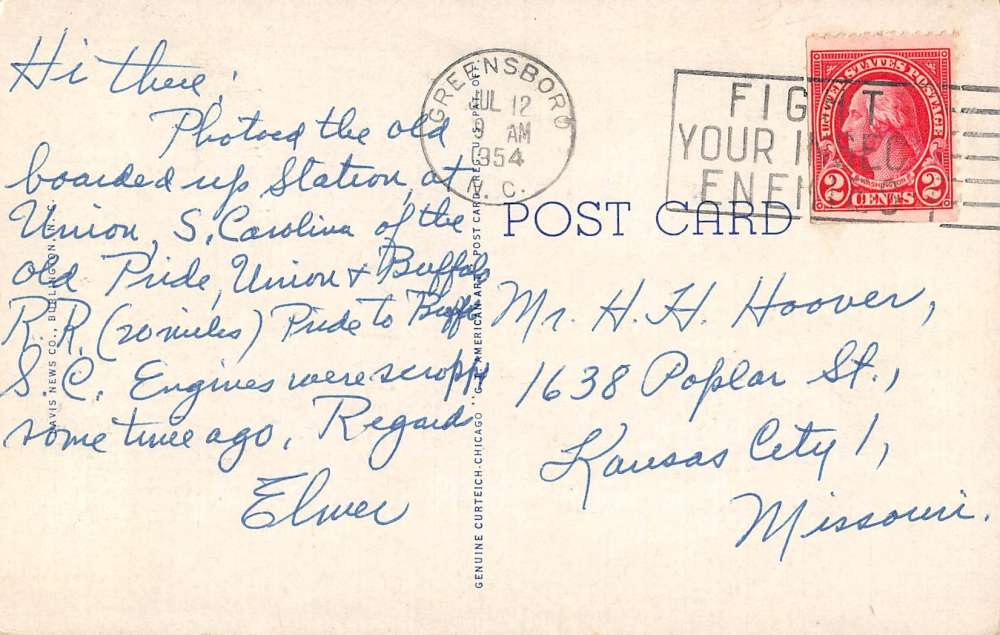 Hi there,
Photoed the old
boarded up Station, at
Union, S. Carolina of the
old Pride, Union & Buffalo
R.R. (20 miles) Pride to Buff
S. C. Engines were scrapp
some time ago. Regard
Elmer
DAVIS NEWS CO., BURLINGTON, N. C.
GENUINE CURTEICH-CHICAGO "C.T. AMERICAN ART" POST CARD (REG. U. S. PAT. OFF.)
GREENSBORO
JUL 12
9 AM
1954
N. C.
FIGHT
YOUR INSECT
ENEMIES
UNITED STATES POSTAGE
WASHINGTON
2 CENTS 2
POST CARD
Mr. H. H. Hoover,
1638 Poplar St.,
Kansas City 1,
Missouri.